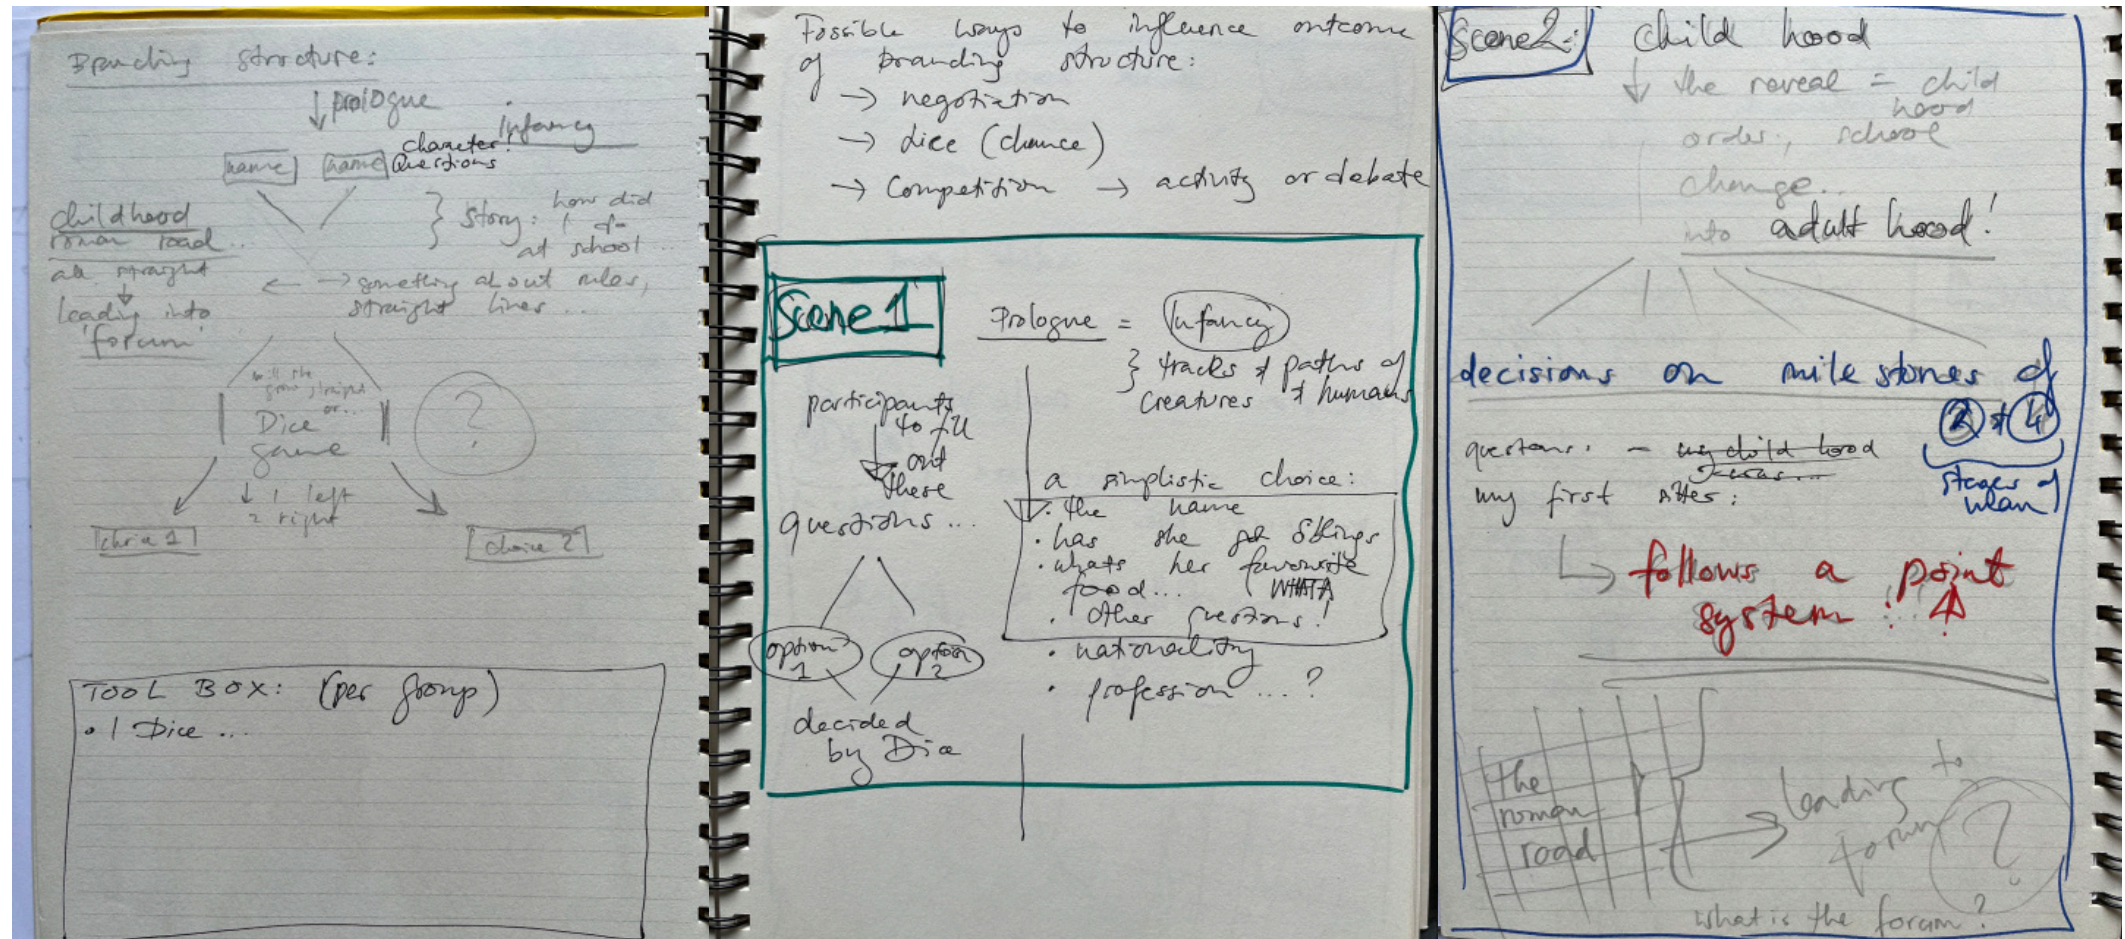 Branching structure:
prologue
Infancy
character!
Questions
name
name
childhood
roman road ..
all straight
leading into
'forum'
story: how did
at school ...
something about rules,
straight lines ...
will she
grow straight
or...
Dice
game
?
1 left
2 right
choice 1
choice 2
TOOL BOX: (per group)
• 1 Dice ...
Possible ways to influence outcome
of branding structure:
→ negotiation
→ dice (chance)
→ Competition → activity or debate
Scene 1
Prologue = Infancy
tracks & paths of
creatures & humans
participants
to fill
out
these
questions ...
option 1
option 2
decided
by Dice
a simplistic choice:
• the name
• has she got siblings
• whats her favourite
food...
• other questions!
• nationality
• profession ... ?
Scene 2:
child hood
the reveal = child
hood
order, school
change..
into adult hood!
decisions on mile stones of
2 & 4
stages of
man
questions: - my child hood
was...
my first
follows a point
system!
the
roman
road
leading to
forum
?
what is the forum?